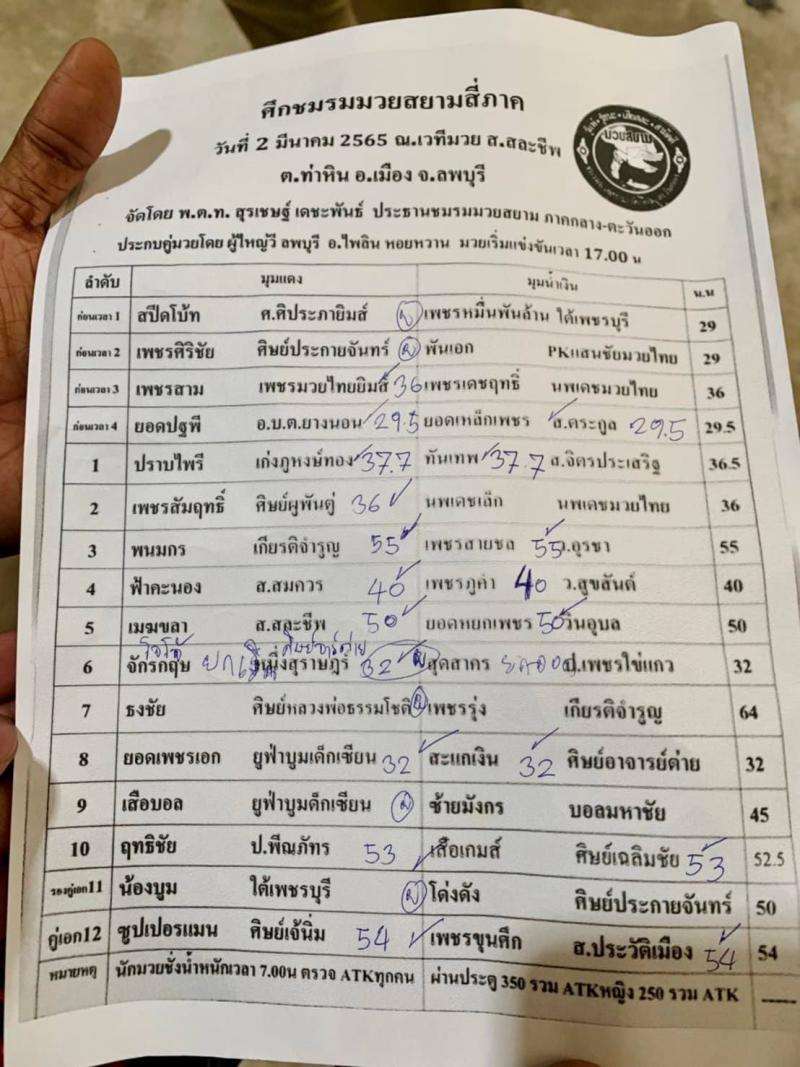 ศึกชมรมมวยสยามสี่ภาค
วันที่ 2 มีนาคม 2565 ณ.เวทีมวย ส.สละชีพ
ต.ท่าหิน อ.เมือง จ.ลพบุรี
มวยสยาม
จัดโดย พ.ต.ท. สุรเชษฐ์ เดชะพันธ์ ประธานชมรมมวยสยาม ภาคกลาง-ตะวันออก
ประกบคู่มวยโดย ผู้ใหญ่วี ลพบุรี อ.ไพลิน หอยหวาน มวยเริ่มแข่งขันเวลา 17.00 น
ลำดับ มุมแดง มุมน้ำเงิน น.น
ก่อนเวลา 1 สปีดโบ้ท ศ.ศิประภายิมส์ เพชรหมื่นพันล้าน ใต้เพชรบุรี 29
ก่อนเวลา 2 เพชรศิริชัย ศิษย์ประกายจันทร์ พันเอก PKแสนชัยมวยไทย 29
ก่อนเวลา 3 เพชรสาม เพชรมวยไทยยิมส์ 36 เพชรเดชฤทธิ์ นพเดชมวยไทย 36
ก่อนเวลา 4 ยอดปฐพี อ.บ.ต.ยางนอน 29.5 ยอดเหล็กเพชร ส.ตระกูล 29.5 29.5
1 ปราบไพรี เก่งภูหงษ์ทอง 37.7 ทันเทพ 37.7 ส.จิตรประเสริฐ 36.5
2 เพชรสัมฤทธิ์ ศิษย์ผูพันตู่ 36 นพเดชเล็ก นพเดชมวยไทย 36
3 พนมกร เกียรติจำรูญ 55 เพชรสายชล 55 ว.อุรชา 55
4 ฟ้าคะนอง ส.สมควร 40 เพชรภูคำ 40 ว.สุขสันต์ 40
5 เมฆขลา ส.สละชีพ 50 ยอดหยกเพชร 50 วินอุบล 50
6 จักรกฤษ หมึ่งสุราษฎร์ 32 สุดสากร ป.เพชรไข่แกว 32
7 ธงชัย ศิษย์หลวงพ่อธรรมโชติ เพชรรุ่ง เกียรติจำรูญ 64
8 ยอดเพชรเอก ยูฟ่าบูมเด็กเซียน 32 สะแกเงิน 32 ศิษย์อาจารย์ต่าย 32
9 เสือบอล ยูฟ่าบูมด็กเซียน ซ้ายมังกร บอลมหาชัย 45
10 ฤทธิชัย ป.พีณภัทร 53 เสือเกมส์ ศิษย์เฉลิมชัย 53 52.5
รองคู่เอก11 น้องบูม ใต้เพชรบุรี โด่งดัง ศิษย์ประกายจันทร์ 50
คู่เอก12 ซูปเปอรแมน ศิษย์เจ้นิ่ม 54 เพชรขุนศึก ส.ประวัติเมือง 54 54
หมายหตุ นักมวยชั่งน้ำหนักเวลา 7.00น ตรวจ ATKทุกคน ผ่านประตู 350 รวม ATKหญิง 250 รวม ATK -----